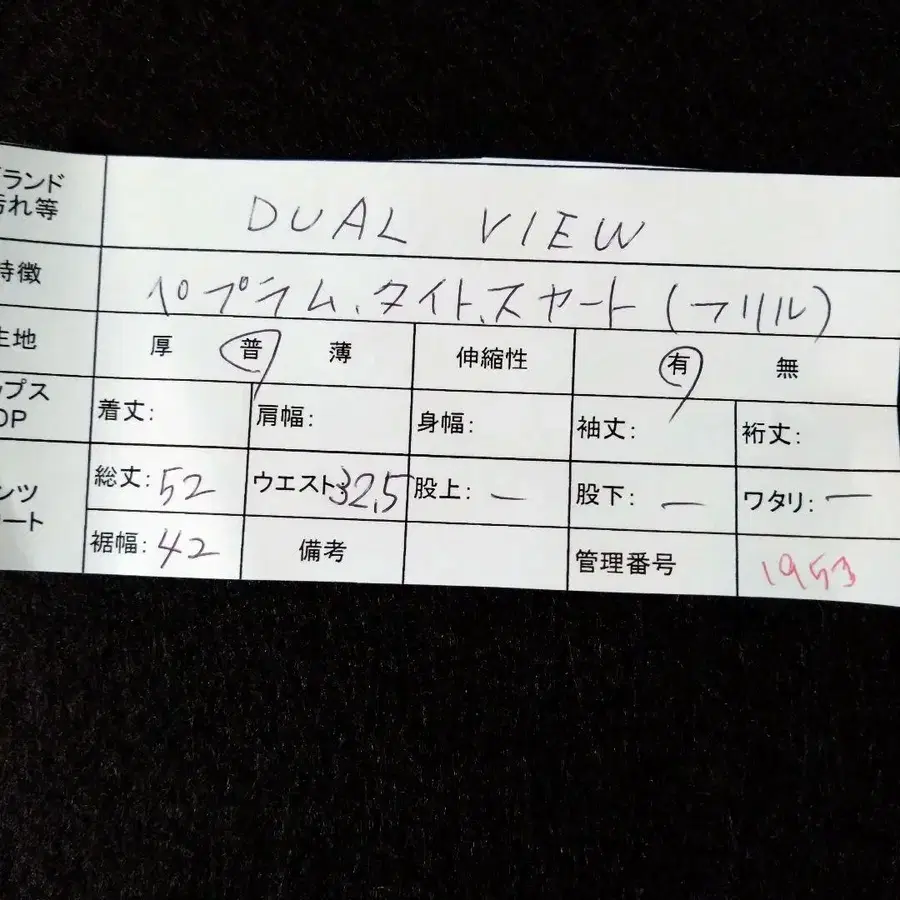 ブランド
汚れ等 DUAL VIEW
特徴 ペプラム、タイト、スヤート(フリル)
生地 厚 普 薄 伸縮性 有 無
ップス
OP 着丈: 肩幅: 身幅: 袖丈: 裄丈:
ンツ 総丈:52 ウエスト:32,5 股上:ー 股下:ー ワタリ:ー
ート 裾幅:42 備考 管理番号 1953